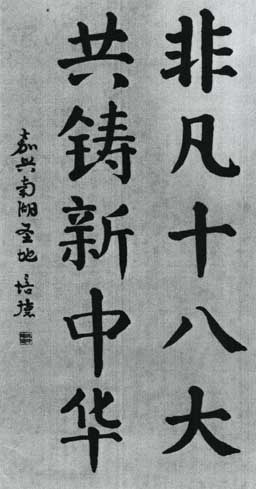 非凡十八大
共铸新中华
嘉兴南湖圣地 培德